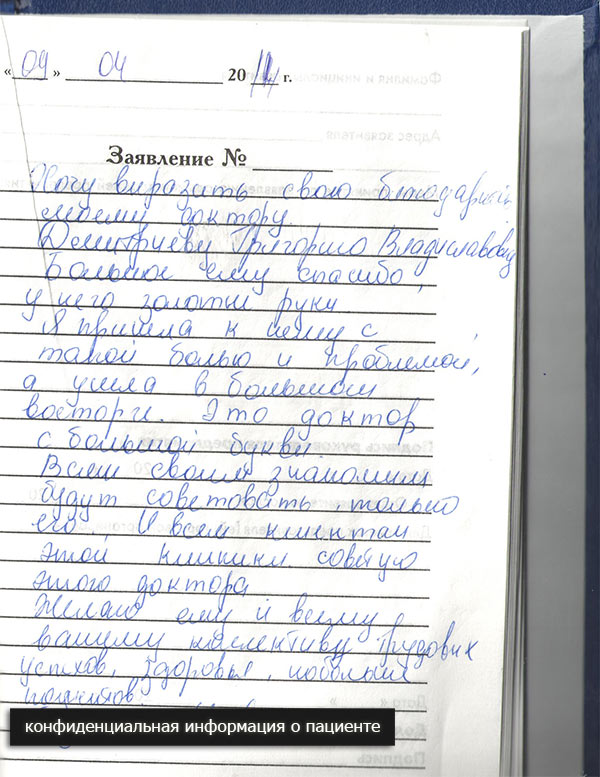 « 09 » 04 2014 г.
Заявление №
Хочу виразить свою благодарність
моему доктору
Дмитриеву Григорию Владиславовичу
Большое ему спасибо,
у него золотти руки
Я пришла к нему с
такой болью и проблемой,
а ушла в большом
восторге. Это доктор
с большой букви.
Всем своим знакомим
будут советовать только
его И всем клиентам
этой клиники советую
этого доктора
Желаю ему и всему
вашему коллективу трудових
успехов, здоровья, побольше
пациентов.
конфиденциальная информация о пациенте
Фамилия и инициалы
Адрес заявителя